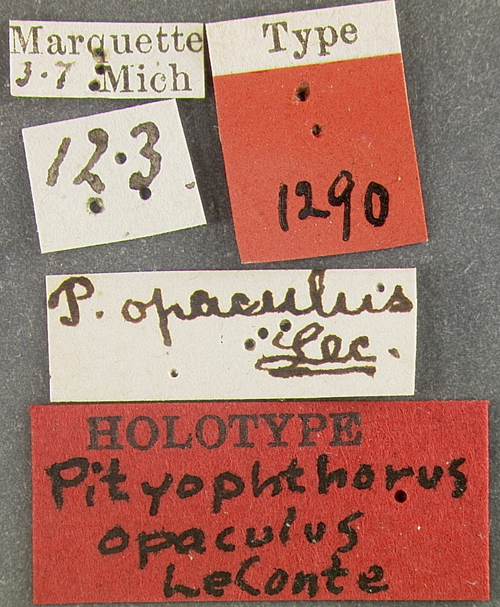 Marquette
3·7 Mich
Type
1290
12·3
P. opaculus
Lec.
HOLOTYPE
Pityophthorus
opaculus
LeConte